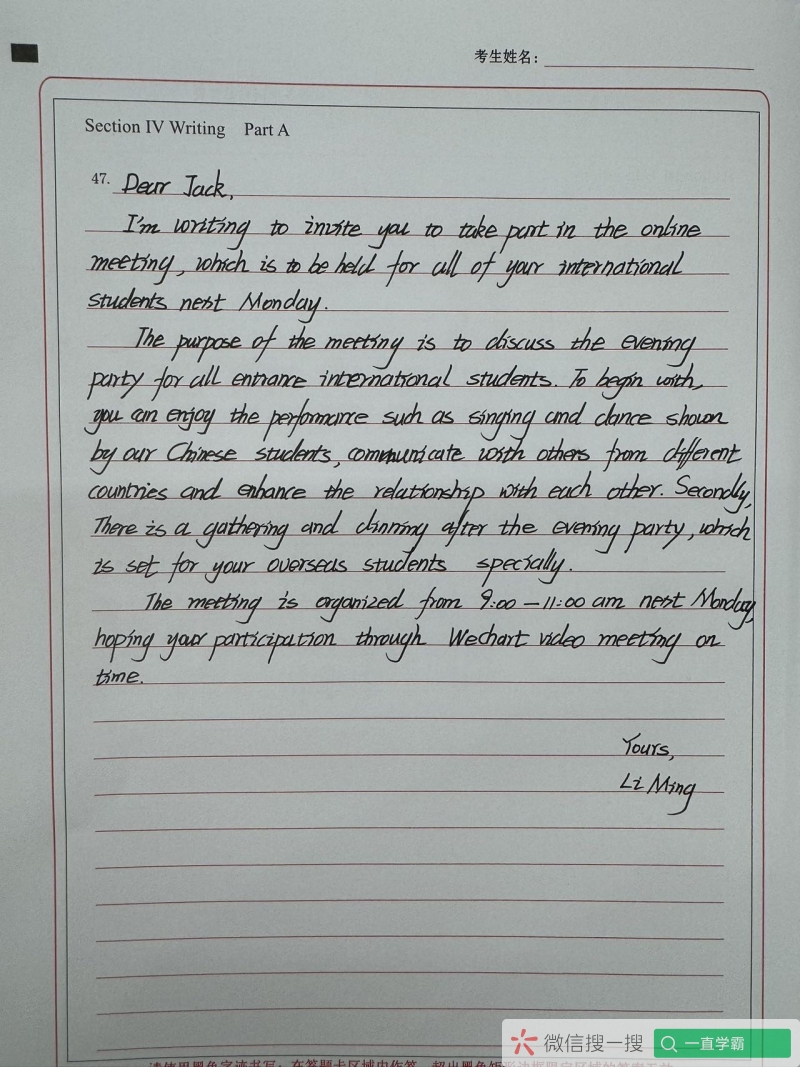 考生姓名:
Section IV Writing Part A
47. Dear Jack,
I'm writing to invite you to take part in the online
meeting, which is to be held for all of your international
students next Monday.
The purpose of the meeting is to discuss the evening
party for all entrance international students. To begin with,
you can enjoy the performance such as singing and dance shown
by our Chinese students, communicate with others from different
countries and enhance the relationship with each other. Secondly,
There is a gathering and dinning after the evening party, which
is set for your overseas students specially.
The meeting is organized from 9:00 — 11:00 am next Monday,
hoping your participation through Wechart video meeting on
time.
Yours,
Li Ming
微信搜一搜
一直学霸